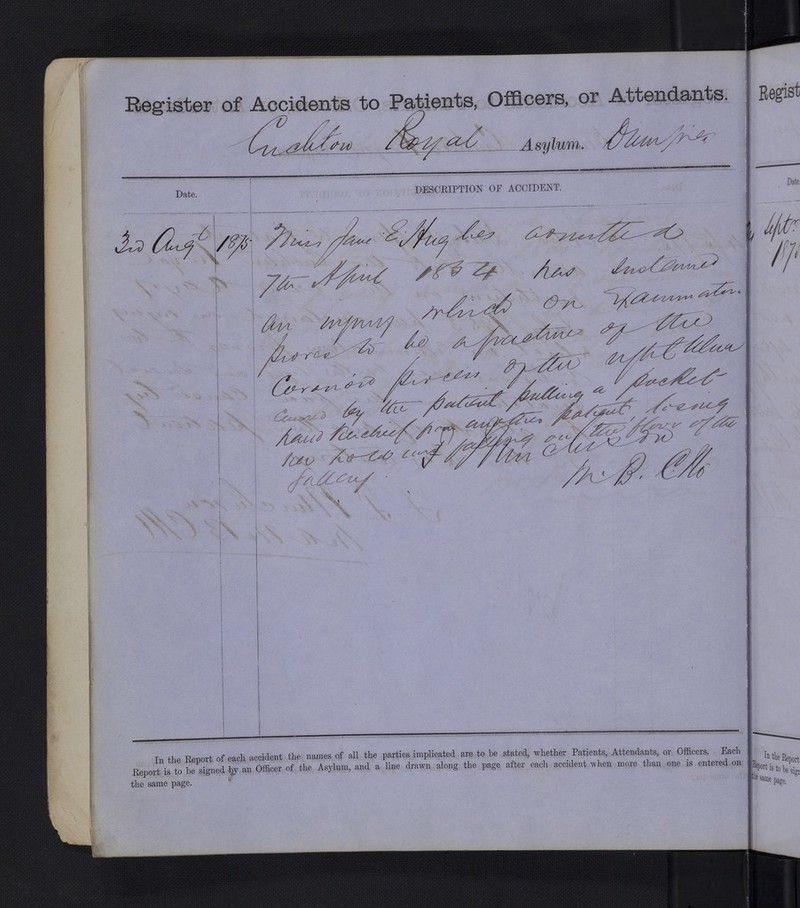 Register of Accidents to Patients, Officers, or Attendants.
Crichton Royal Asylum. Dumfries
Date. DESCRIPTION OF ACCIDENT.
3rd Augt 1875 Miss Jane E. Hughes admitted
7th April 1854 has sustained
an injury which on Examination
proves to be a fracture of the
Coronoid process of the right Ulna
caused by the patient pulling a pocket
handkerchief from another patient losing
her hold and falling on the floor of the
Gallery.
M.B. CM
In the Report of each accident the names of all the parties implicated are to be stated, whether Patients, Attendants, or Officers. Each
Report is to be signed by an Officer of the Asylum, and a line drawn along the page after each accident when more than one is entered on
the same page.
Regist
Date.
Septr
187
In the Report
Report is to be sign
the same page.